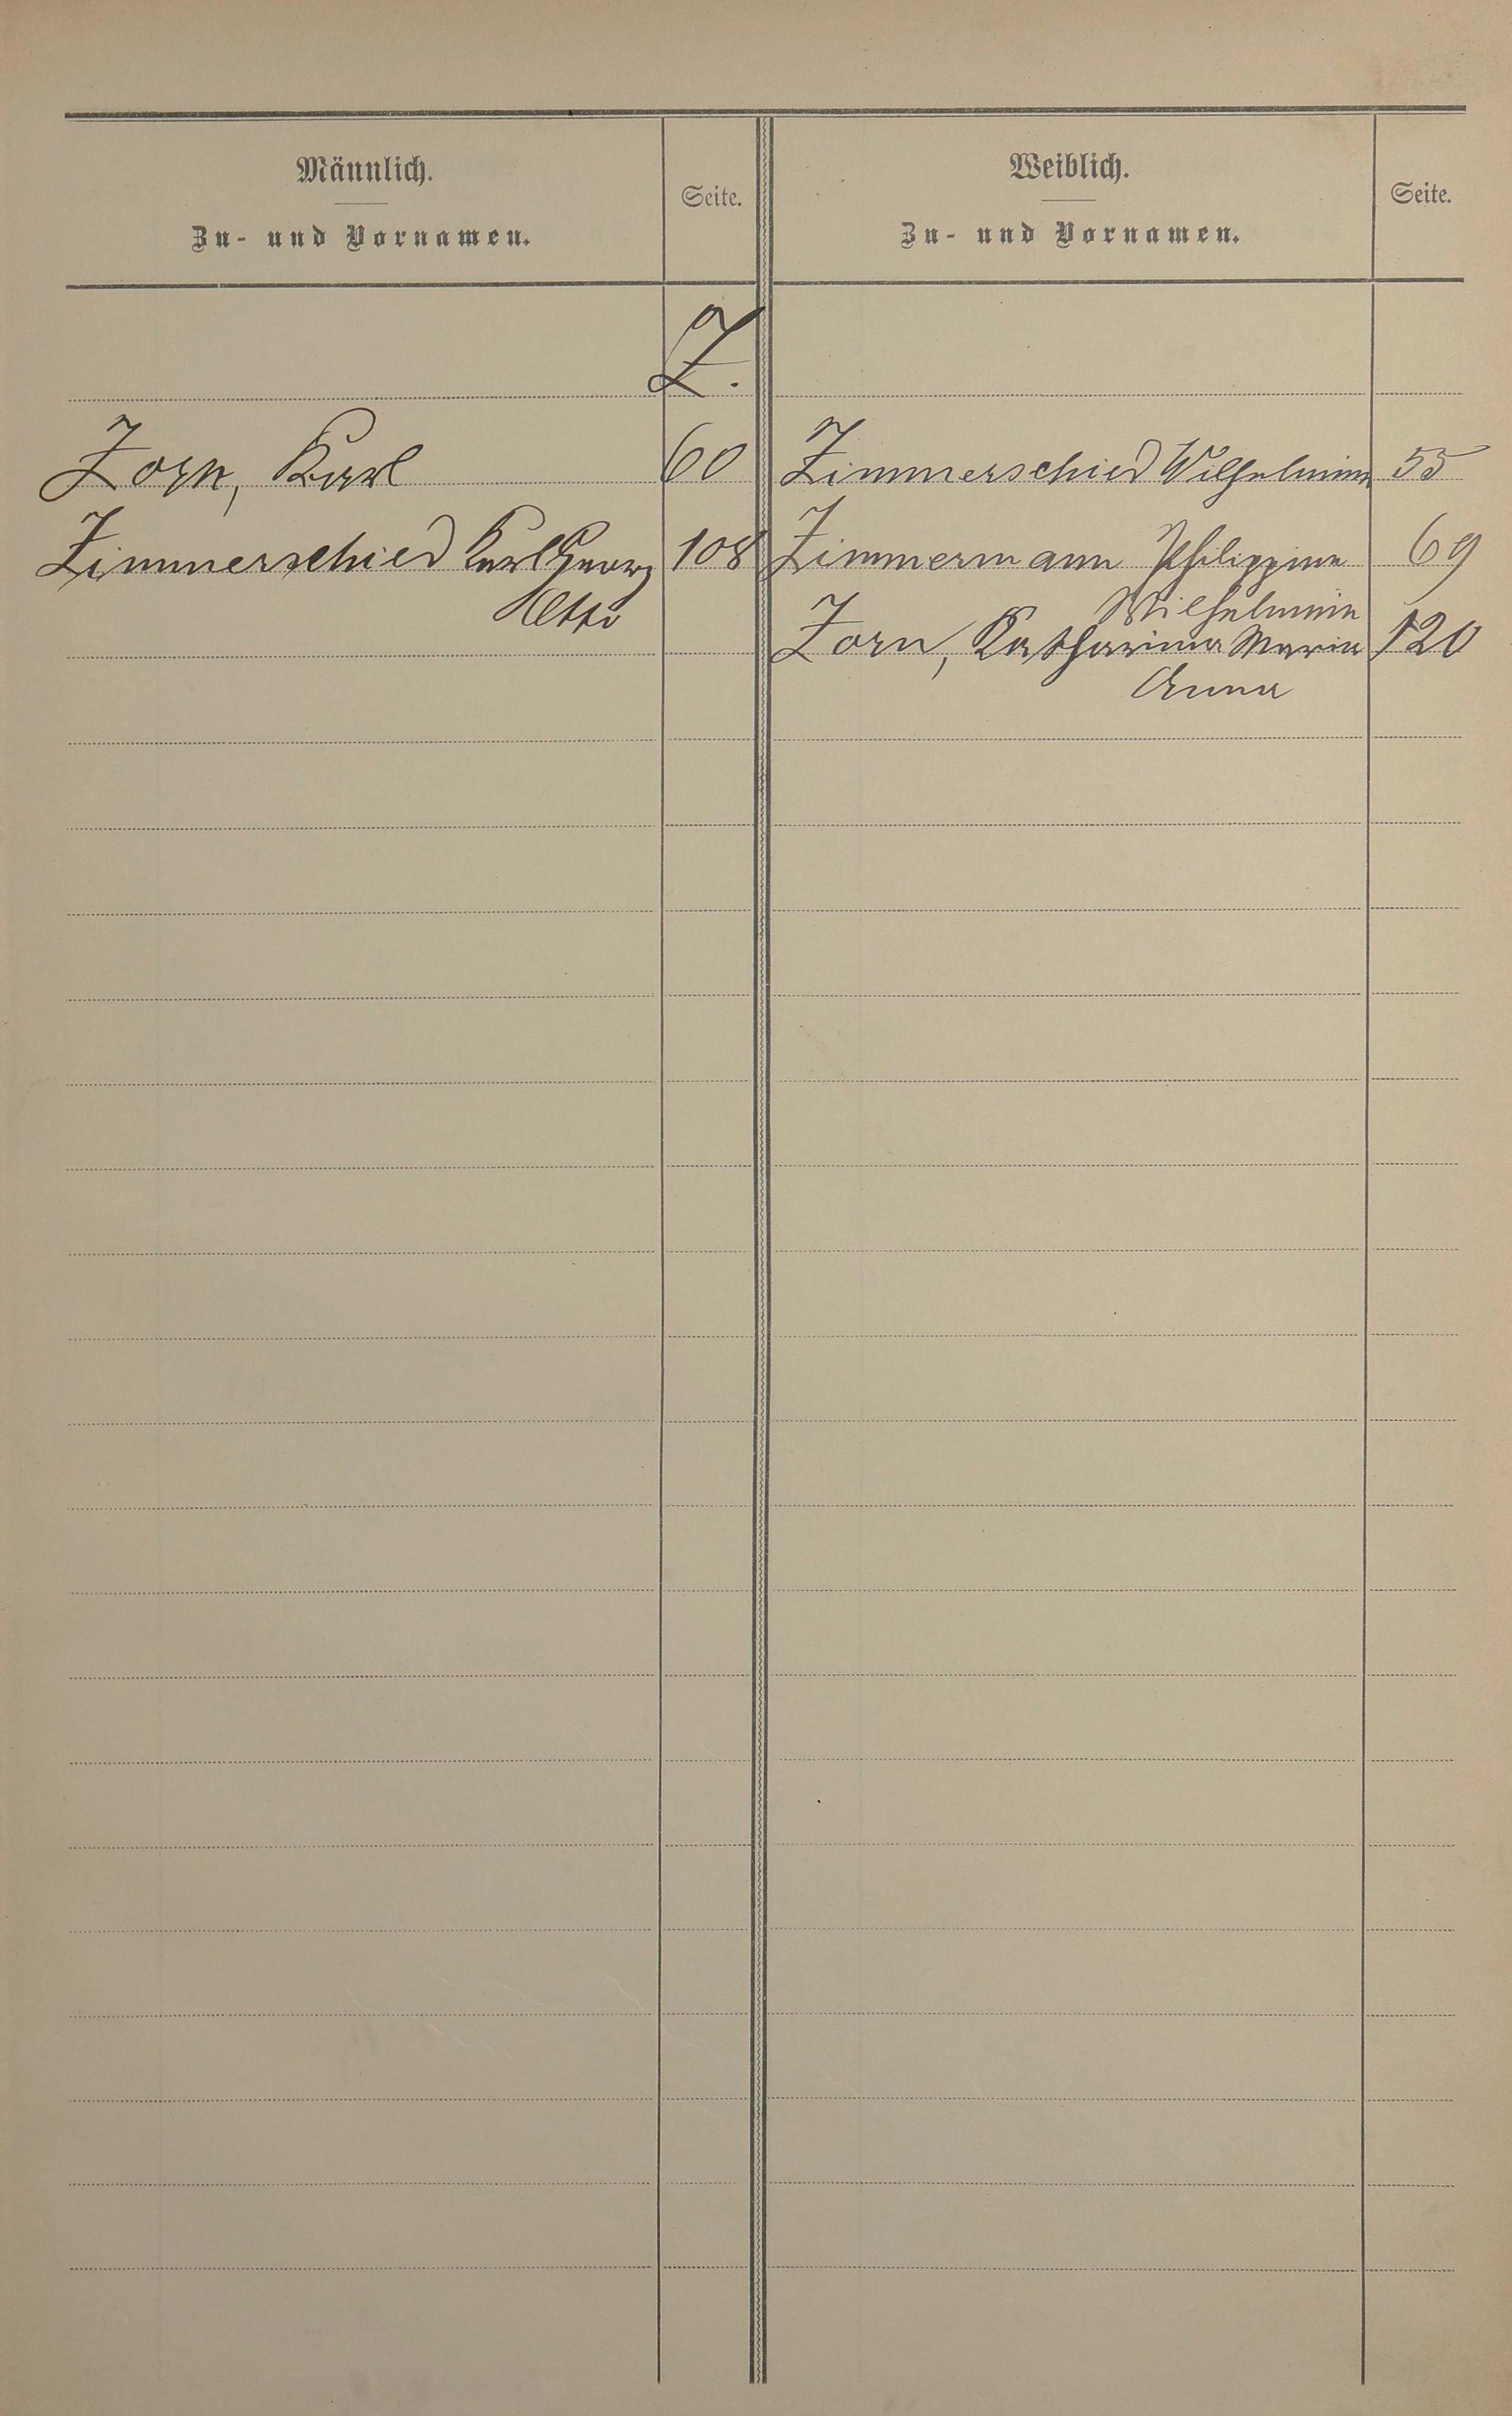 Männlich.
Zu- und Vornamen.
Seite.
Weiblich.
Zu- und Vornamen.
Seite.
Z.
Zorn, Karl 60
Zimmerschied Karl Georg 108
Otto
Zimmerschied Wilhelmine 55
Zimmermann Philippine 69
Wilhelmine
Zorn, Katharina Maria 120
Anna